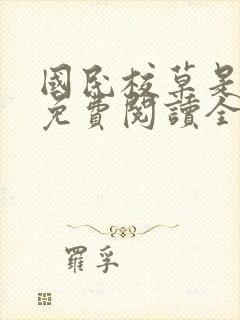 國民校草是
免費閱讀全
羅孚